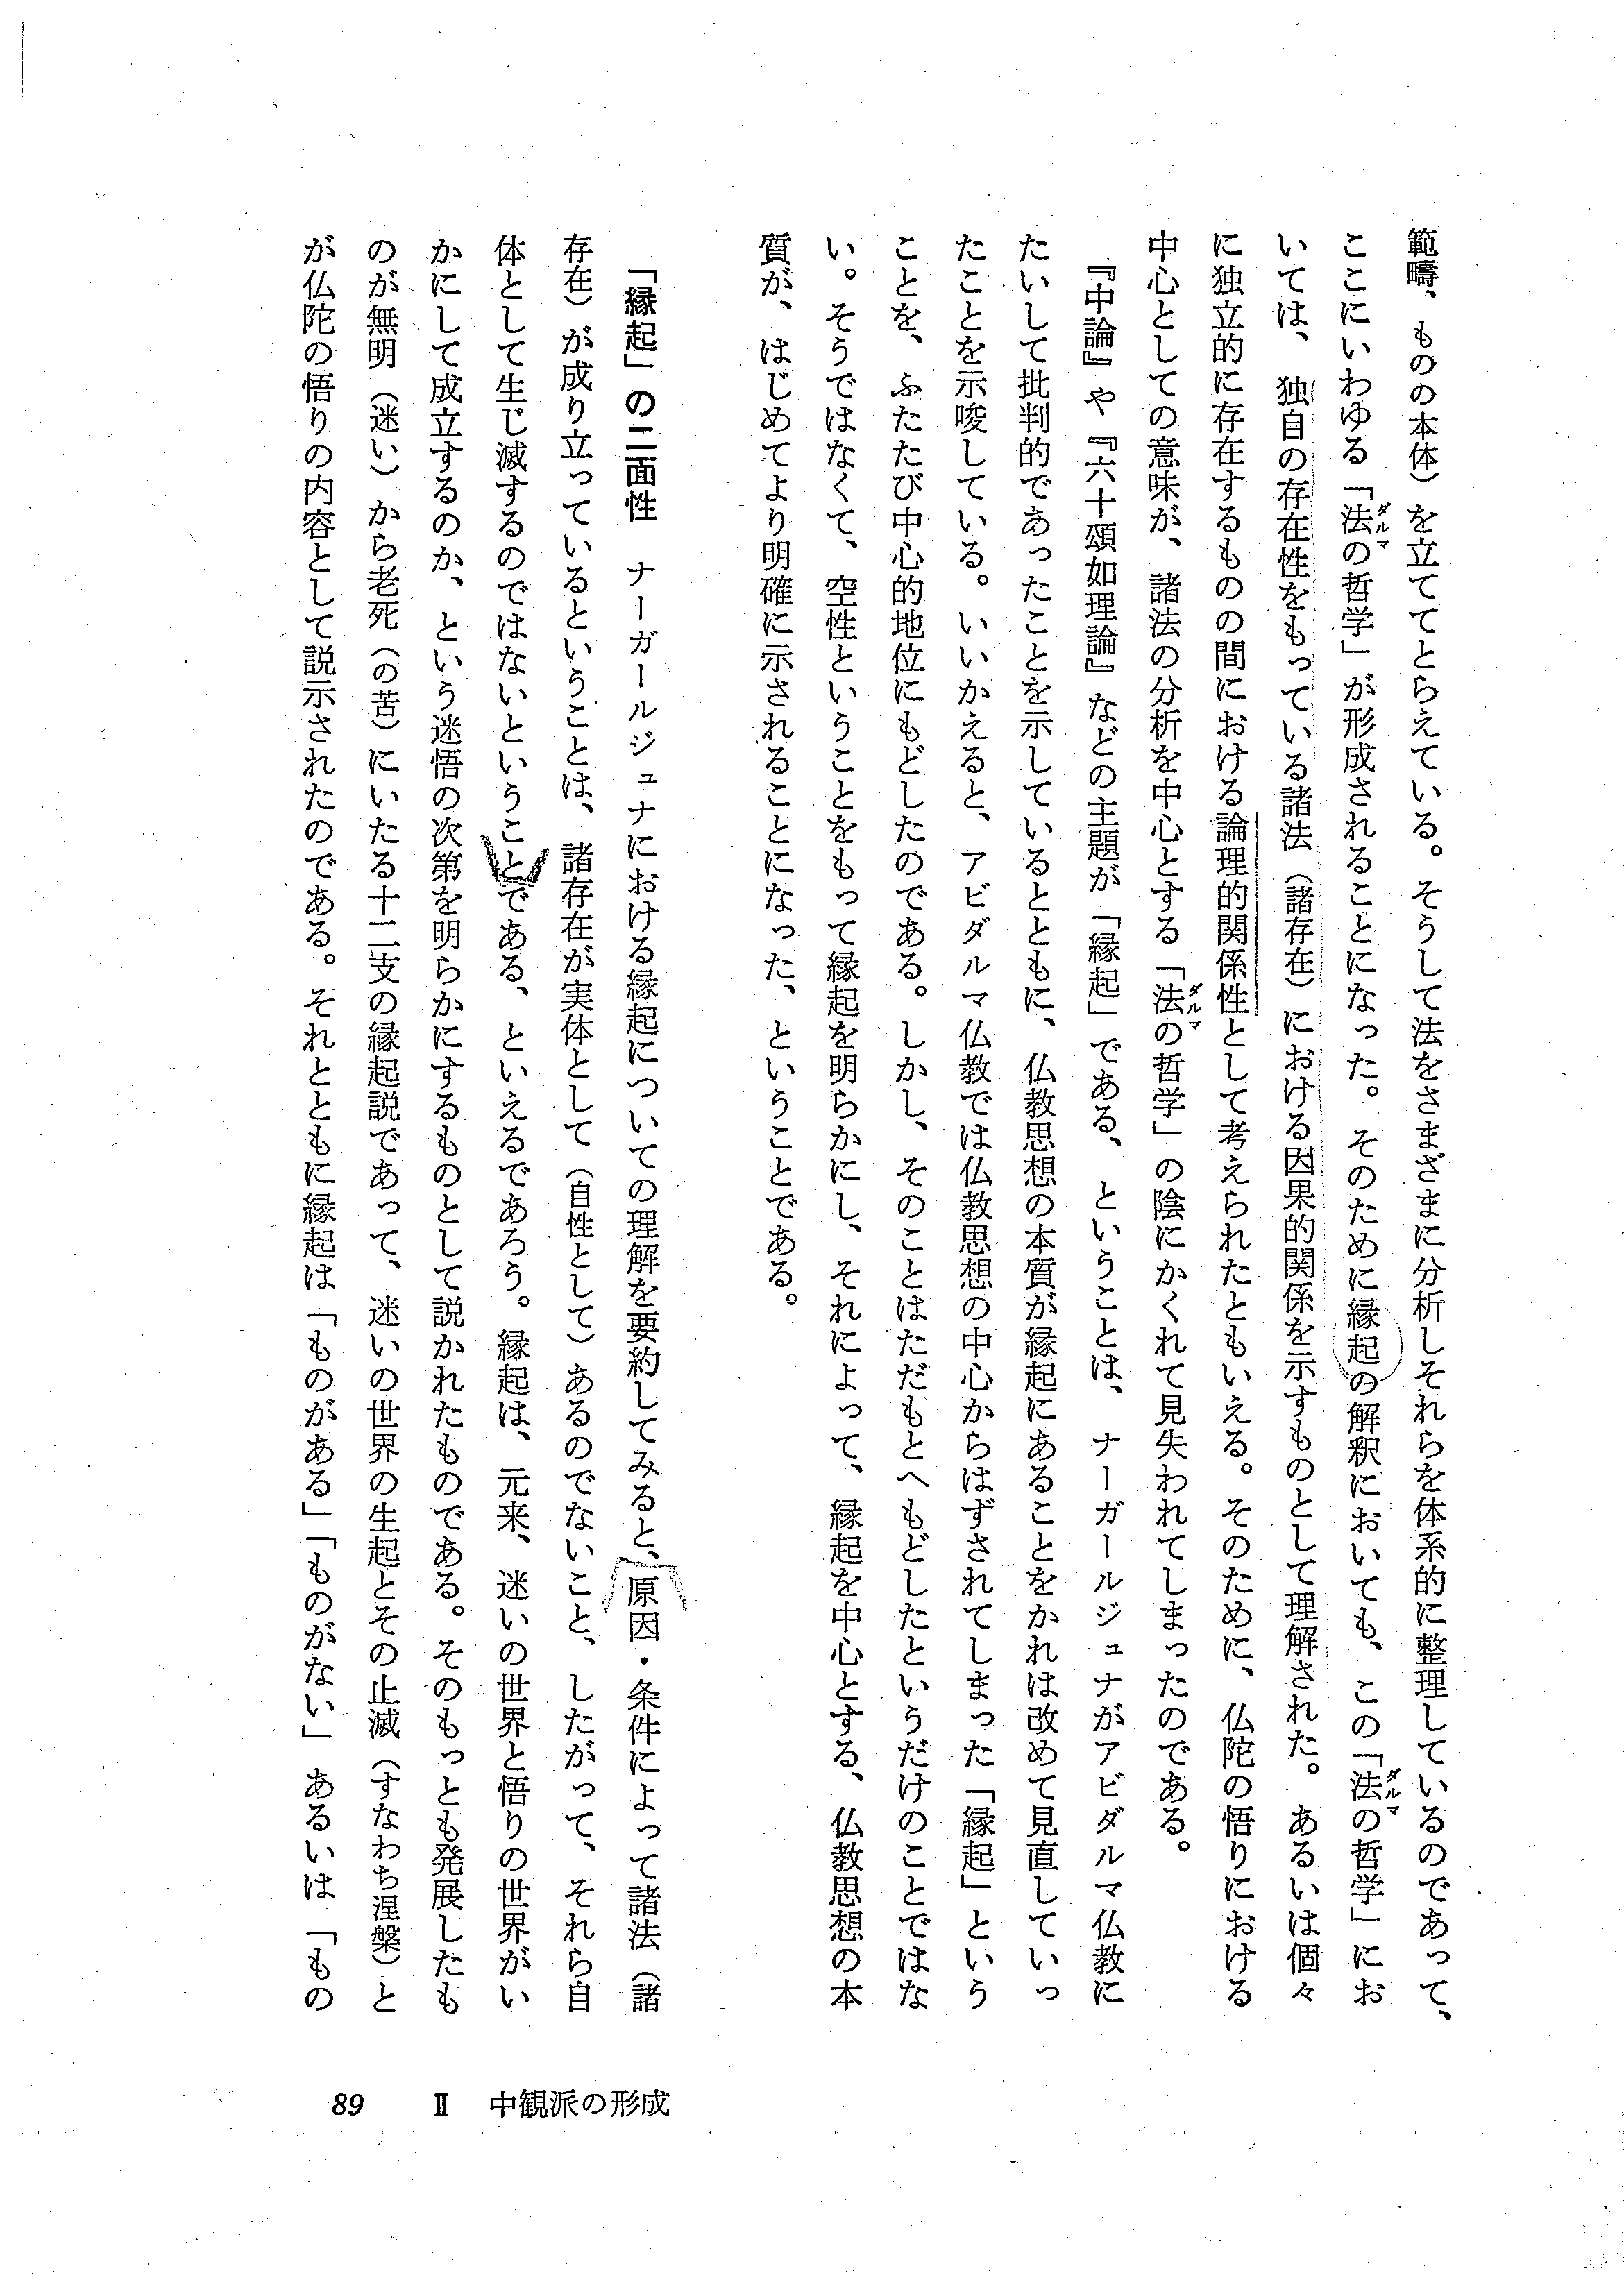 範疇、ものの本体）を立ててとらえている。そうして法をさまざまに分析しそれらを体系的に整理しているのであって、
ここにいわゆる「法の哲学」が形成されることになった。そのために縁起の解釈においても、この「法の哲学」にお
ダルマ
ダルマ
いては、独自の存在性をもっている諸法（諸存在）における因果的関係を示すものとして理解された。あるいは個々
に独立的に存在するものの間における論理的関係性として考えられたともいえる。そのために、仏陀の悟りにおける
中心としての意味が、諸法の分析を中心とする「法の哲学」の陰にかくれて見失われてしまったのである。
ダルマ
『中論』や『六十頌如理論』などの主題が「縁起」である、ということは、ナーガールジュナがアビダルマ仏教に
たいして批判的であったことを示しているとともに、仏教思想の本質が縁起にあることをかれは改めて見直していっ
たことを示唆している。いいかえると、アビダルマ仏教では仏教思想の中心からはずされてしまった「縁起」という
ことを、ふたたび中心的地位にもどしたのである。しかし、そのことはただもとへもどしたというだけのことではな
い。そうではなくて、空性ということをもって縁起を明らかにし、それによって、縁起を中心とする、仏教思想の本
質が、はじめてより明確に示されることになった、ということである。
「縁起」の二面性　ナーガールジュナにおける縁起についての理解を要約してみると、原因・条件によって諸法（諸
存在）が成り立っているということは、諸存在が実体として（自性として）あるのでないこと、したがって、それら自
体として生じ滅するのではないということである、といえるであろう。縁起は、元来、迷いの世界と悟りの世界がい
かにして成立するのか、という迷悟の次第を明らかにするものとして説かれたものである。そのもっとも発展したも
のが無明（迷い）から老死（の苦）にいたる十二支の縁起説であって、迷いの世界の生起とその止滅（すなわち涅槃）と
が仏陀の悟りの内容として説示されたのである。それとともに縁起は「ものがある」「ものがない」あるいは「もの
89　Ⅱ　中観派の形成